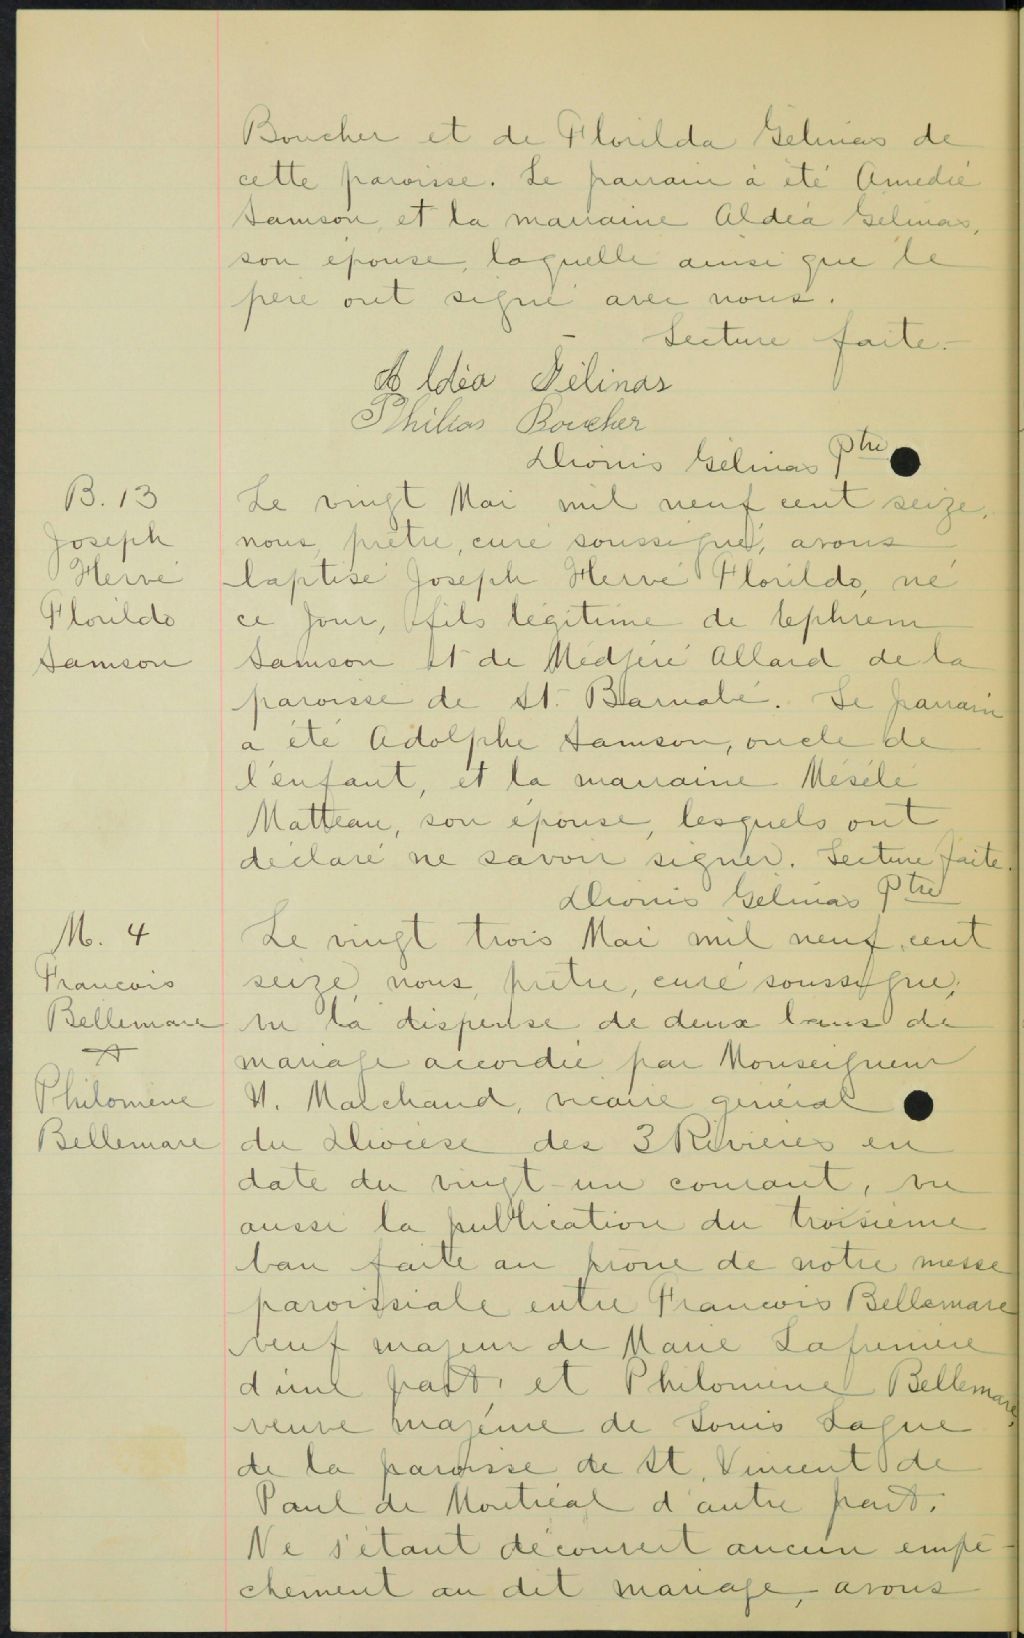 Boucher et de Florilda Gélinas de
cette paroisse. Le parrain à été Amedié
Samson, et la marraine Aldéa Gélinas,
son épouse, laquelle ainsi que le
père ont signé avec nous.
Lecture faite.-
Aldéa Gélinas
Philias Boucher
Dionis Gélinas Ptre
B. 13
Joseph
Hervé
Florildo
Samson
Le vingt Mai mil neuf cent seize,
nous, prêtre, curé soussigné, avons
baptisé Joseph Hervé Florildo, né
ce jour, fils légitime de Ephrem
Samson et de Médjéré Allard de la
paroisse de St. Barnabé. Le parrain
a été Adolphe Samson, oncle de
l'enfant, et la marraine Mésélé
Matteau, son épouse, lesquels ont
déclaré ne savoir signer. Lecture faite.
Dionis Gélinas Ptre
M. 4
Francois
Bellemare
et
Philomène
Bellemare
Le vingt trois Mai mil neuf cent
seize, nous, prêtre, curé soussigné,
vu la dispense de deux bans de
mariage accordée par Monseigneur
Marchand, vicaire général
du Diocèse des 3 Rivières en
date du vingt-un courant, vu
aussi la publication du troisième
ban faite au prône de notre messe
paroissiale entre Francois Bellemare
veuf majeur de Marie Lafrenière
d'une part, et Philomène Bellemare,
veuve majeure de Louis Lague
de la paroisse de St. Vincent de
Paul de Montréal d'autre part.
Ne s'étant découvert aucun empê-
chement au dit mariage, avons